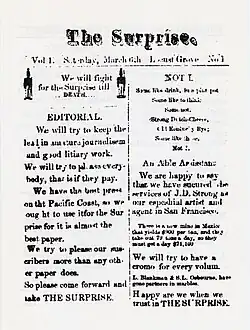 The Surprise.
Vol 1. Saturday, March 6th Locust Grove No 1
We will fight
for the Surprise till
DEATH
EDITORIAL.
We will try to keep the
lead in amateur journalism
and good litiary work.
We will try to please every-
body, that is if they pay.
We have the best press
on tht Pacific Coast, so we
ought to use it for the Sur
prise for it is almost the
best paper.
We try to please our sus-
cribers more than any oth-
er paper does.
So please come forward and
take THE SURPRISE.
NOT I.
Some like drink, in a pint pot
Some like to think;
Some not.
Strong Dutch Cheese,
Old Kentucky Rye;
Some like,
Not I.
An Able Assistant
We are happy to say
that we have secured the
services of J.D. Strong as
our espedhial artist and
agent in San Francisco.
There is a new mine in Mexico
that yields $900 per ton, and they
take out 79 tons a day, so they
must get a day $71,100
We will try to have a
cromo for every volum.
L. Blankman & S.L. Osbourne, have
gone partners in marbles.
Happy are we when we
trust in THE SURPRISE.